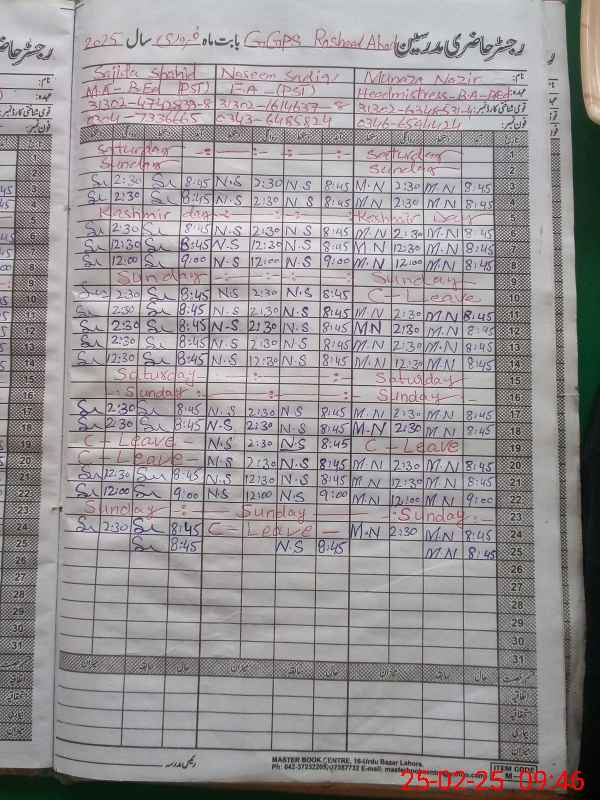 رجسٹر حاضری مدرسین GGPS Rasheed Abad بابت ماہ فروری سال 2025
نام: Munaza Nazir Naseem Sadiq Sajida Shahid
عہدہ: Headmistress-B.A-B.Ed F.A-(PST) M.A-B.Ed (PST)
قومی شناختی کارڈ نمبر: 31302-1614637-8 31302-4742839-8
فون نمبر: 0346-6594424 0343-6485824 0304-7336665
Saturday -:- Saturday 1
Sunday Sunday 2
Su 2:30 Su 8:45 N.S 2:30 N.S 8:45 M.N 2:30 M.N 8:45 3
Su 2:30 Su 8:45 N.S 2:30 N.S 8:45 M.N 2:30 M.N 8:45 4
Kashmir day -:- -:- Kashmir Day 5
Su 2:30 Su 8:45 N.S 2:30 N.S 8:45 M.N 2:30 M.N 8:45 6
Su 12:30 Su 8:45 N.S 12:30 N.S 8:45 M.N 12:30 M.N 8:45 7
Su 12:00 Su 9:00 N.S 12:00 N.S 9:00 M.N 12:00 M.N 8:45 8
Sunday -:- -:- Sunday 9
Su 2:30 Su 8:45 N.S 2:30 N.S 8:45 C-Leave 10
Su 2:30 Su 8:45 N.S 2:30 N.S 8:45 M.N 2:30 M.N 8:45 11
Su 2:30 Su 8:45 N.S 2:30 N.S 8:45 M.N 2:30 M.N 8:45 12
Su 2:30 Su 8:45 N.S 2:30 N.S 8:45 M.N 2:30 M.N 8:45 13
Su 12:30 Su 8:45 N.S 12:30 N.S 8:45 M.N 12:30 M.N 8:45 14
Saturday -:- Saturday 15
Sunday -:- Sunday 16
Su 2:30 Su 8:45 N.S 2:30 N.S 8:45 M.N 2:30 M.N 8:45 17
Su 2:30 Su 8:45 N.S 2:30 N.S 8:45 M.N 2:30 M.N 8:45 18
C-Leave - N.S 2:30 N.S 8:45 C-Leave 19
C-Leave - N.S 2:30 N.S 8:45 M.N 2:30 M.N 8:45 20
Su 12:30 Su 8:45 N.S 12:30 N.S 8:45 M.N 12:30 M.N 8:45 21
Su 12:00 Su 9:00 N.S 12:00 N.S 9:00 M.N 12:00 M.N 9:00 22
Sunday -:- Sunday Sunday - 23
Su 2:30 Su 8:45 C-Leave - M.N 2:30 M.N 8:45 24
Su 8:45 N.S 8:45 M.N 8:45 25
26
27
28
29
30
31
میزان سابقہ حال میزان سابقہ حال میزان سابقہ حال
MASTER BOOK CENTRE, 16-Urdu Bazar Lahore.
Ph: 042-37232205
ITEM CODE
25-02-25 09:46